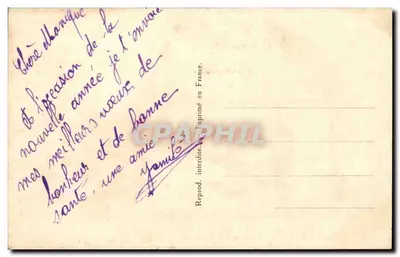 Chère Monique
et l'occasion de la
nouvelle année je t'envoie
mes meilleurs vœux de
bonheur et de bonne
santé, une amie
Reprod. interdite. Imprimé en France.